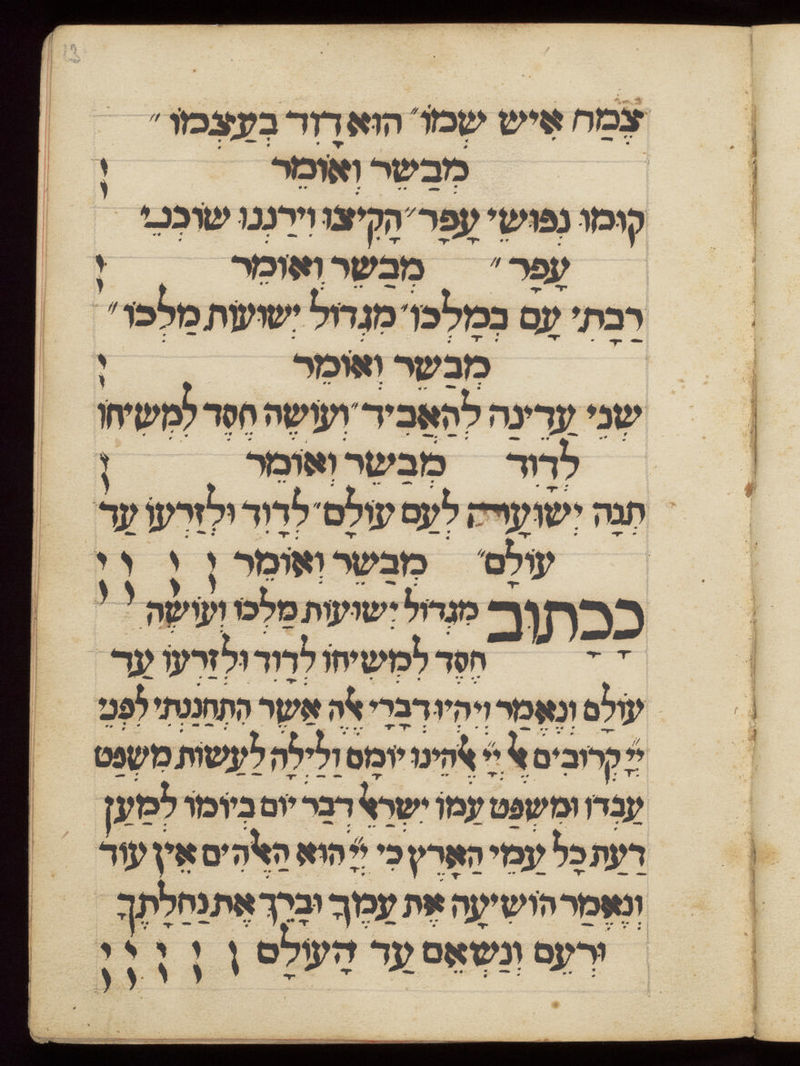 צֶמַח אִישׁ שְׁמוֹ ״ הוּא דָוִד בְּעַצְמוֹ ״
מְבַשֵּׂר וְאוֹמֵר
קוּמוּ נְפוּשֵׁי עָפָר ״ הָקִיצוּ וִירַנְּנוּ שׁוֹכְנֵי
עָפָר ״ מְבַשֵּׂר וְאוֹמֵר
רַבָּתִי עָם בְּמָלְכוֹ ״ מִגְדּוֹל יְשׁוּעוֹת מַלְכּוֹ ״
מְבַשֵּׂר וְאוֹמֵר
שְׁנֵי עֲדִינָה לְהַאֲבִיד ״ וְעוֹשֶׂה חֶסֶד לִמְשִׁיחוֹ
לְדָוִד מְבַשֵּׂר וְאוֹמֵר
תְּנָה יְשׁוּעָה לְעַם עוֹלָם ״ לְדָוִד וּלְזַרְעוֹ עַד
עוֹלָם ״ מְבַשֵּׂר וְאוֹמֵר
כַּכָּתוּב מִגְדּוֹל יְשׁוּעוֹת מַלְכּוֹ וְעוֹשֶׂה
חֶסֶד לִמְשִׁיחוֹ לְדָוִד וּלְזַרְעוֹ עַד
עוֹלָם וְנֶאֱמַר וְיִהְיוּ דְבָרַי אֵלֶּה אֲשֶׁר הִתְחַנַּנְתִּי לִפְנֵי
יְיָ קְרוֹבִים אֶל יְיָ אֱלֹהֵינוּ יוֹמָם וָלַיְלָה לַעֲשׂוֹת מִשְׁפַּט
עַבְדּוֹ וּמִשְׁפַּט עַמּוֹ יִשְׂרָאֵל דְּבַר יוֹם בְּיוֹמוֹ לְמַעַן
דַּעַת כָּל עַמֵּי הָאָרֶץ כִּי יְיָ הוּא הָאֱלֹהִים אֵין עוֹד
וְנֶאֱמַר הוֹשִׁיעָה אֶת עַמֶּךָ וּבָרֵךְ אֶת נַחֲלָתֶךָ
וּרְעֵם וְנַשְּׂאֵם עַד הָעוֹלָם